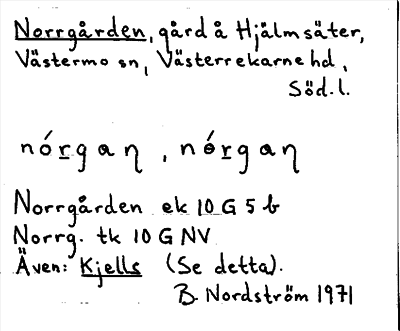 Norrgården, gård å Hjälmsäter,
Västermo sn, Västerrekarne hd,
Söd. l.
nórgaɳ, nórgaɳ
Norrgården ek 10 G 5 b
Norrg. tk 10 G NV
Även: Kjells (Se detta).
B. Nordström 1971